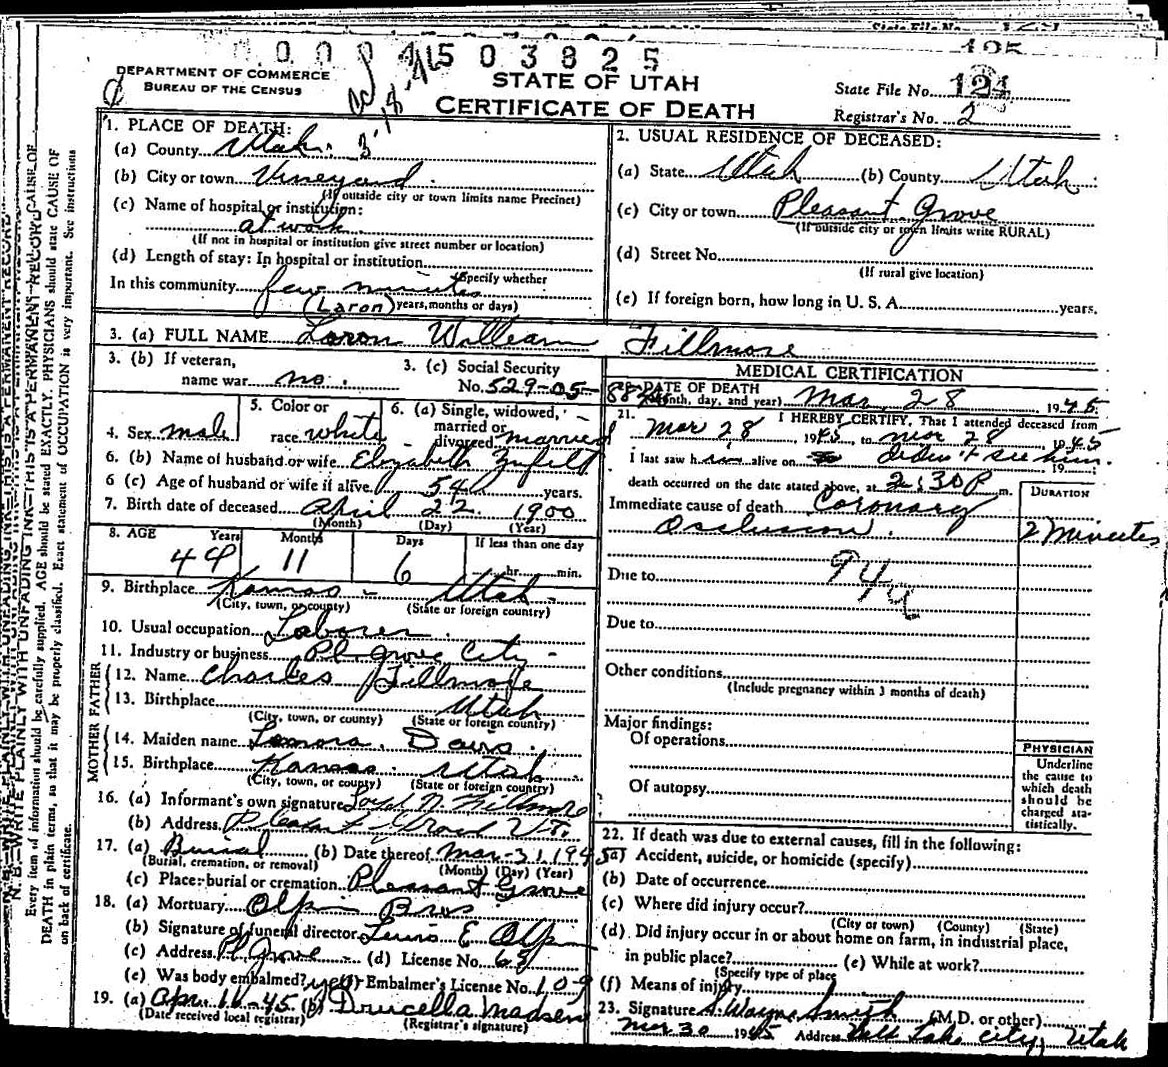 0 0 0 4 5 0 3 8 2 5
DEPARTMENT OF COMMERCE
BUREAU OF THE CENSUS
STATE OF UTAH
CERTIFICATE OF DEATH
State File No. 124
Registrar's No. 2
1. PLACE OF DEATH:
(a) County Utah
(b) City or town Vineyard
(If outside city or town limits name Precinct)
(c) Name of hospital or institution:
at work
(If not in hospital or institution give street number or location)
(d) Length of stay: In hospital or institution
(Specify whether
In this community few minutes
(Laron) years, months or days)
2. USUAL RESIDENCE OF DECEASED:
(a) State Utah (b) County Utah
(c) City or town Pleasant Grove
(If outside city or town limits write RURAL)
(d) Street No.
(If rural give location)
(e) If foreign born, how long in U. S. A. years.
3. (a) FULL NAME Loron William Fillmore
3. (b) If veteran,
name war no.
3. (c) Social Security
No. 529-05-
4. Sex male
5. Color or
race white
6. (a) Single, widowed,
married or
divorced married
6. (b) Name of husband or wife Elizabeth Zufelt
6 (c) Age of husband or wife if alive 54 years.
7. Birth date of deceased April 22 1900
(Month) (Day) (Year)
8. AGE Years Months Days If less than one day
44 11 6 hr. min.
9. Birthplace Kamas - Utah
(City, town, or county) (State or foreign country)
10. Usual occupation Laborer
11. Industry or business Pl. Grove City -
FATHER
12. Name Charles Fillmore
13. Birthplace Utah
(City, town, or county) (State or foreign country)
MOTHER
14. Maiden name Davis
15. Birthplace Kamas Utah
(City, town, or county) (State or foreign country)
16. (a) Informant's own signature Fillmore
(b) Address Pleasant Grove Ut.
17. (a) Burial (b) Date thereof Mar-31, 1945
(Burial, cremation, or removal) (Month) (Day) (Year)
(c) Place: burial or cremation Pleasant Grove
18. (a) Mortuary Olpin Bros
(b) Signature of funeral director Lewis E Olpin
(c) Address Pl. Grove - (d) License No. 65
(e) Was body embalmed? yes (f) Embalmer's License No. 109
19. (a) Apr. 11-45 (b) Drucella Madsen
(Date received local registrar) (Registrar's signature)
MEDICAL CERTIFICATION
20. DATE OF DEATH
(Month, day, and year) Mar. 28 1945
21. I HEREBY CERTIFY, That I attended deceased from
Mar 28, 1945, to Mar 28 1945
I last saw him alive on didn't see him. 19
death occurred on the date stated above, at 2:30 P m.
DURATION
Immediate cause of death Coronary
Occlusion. 2 Minutes
Due to 94a
Due to
Other conditions
(Include pregnancy within 3 months of death)
Major findings:
Of operations
Of autopsy
PHYSICIAN
Underline
the cause to
which death
should be
charged sta-
tistically.
22. If death was due to external causes, fill in the following:
(a) Accident, suicide, or homicide (specify)
(b) Date of occurrence
(c) Where did injury occur?
(City or town) (County) (State)
(d) Did injury occur in or about home on farm, in industrial place,
in public place? (e) While at work?
(Specify type of place
(f) Means of injury
23. Signature S. Wayne Smith (M.D. or other)
Mar 30 1945 Address Salt Lake City, Utah
N. B.—WRITE PLAINLY WITH UNFADING INK—THIS IS A PERMANENT RECORD
Every item of information should be carefully supplied. AGE should be stated EXACTLY. PHYSICIANS should state CAUSE OF
DEATH in plain terms, so that it may be properly classified. Exact statement of OCCUPATION is very important. See instructions
on back of certificate.